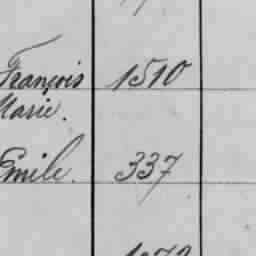 François 1510
Marie.
Emile. 337